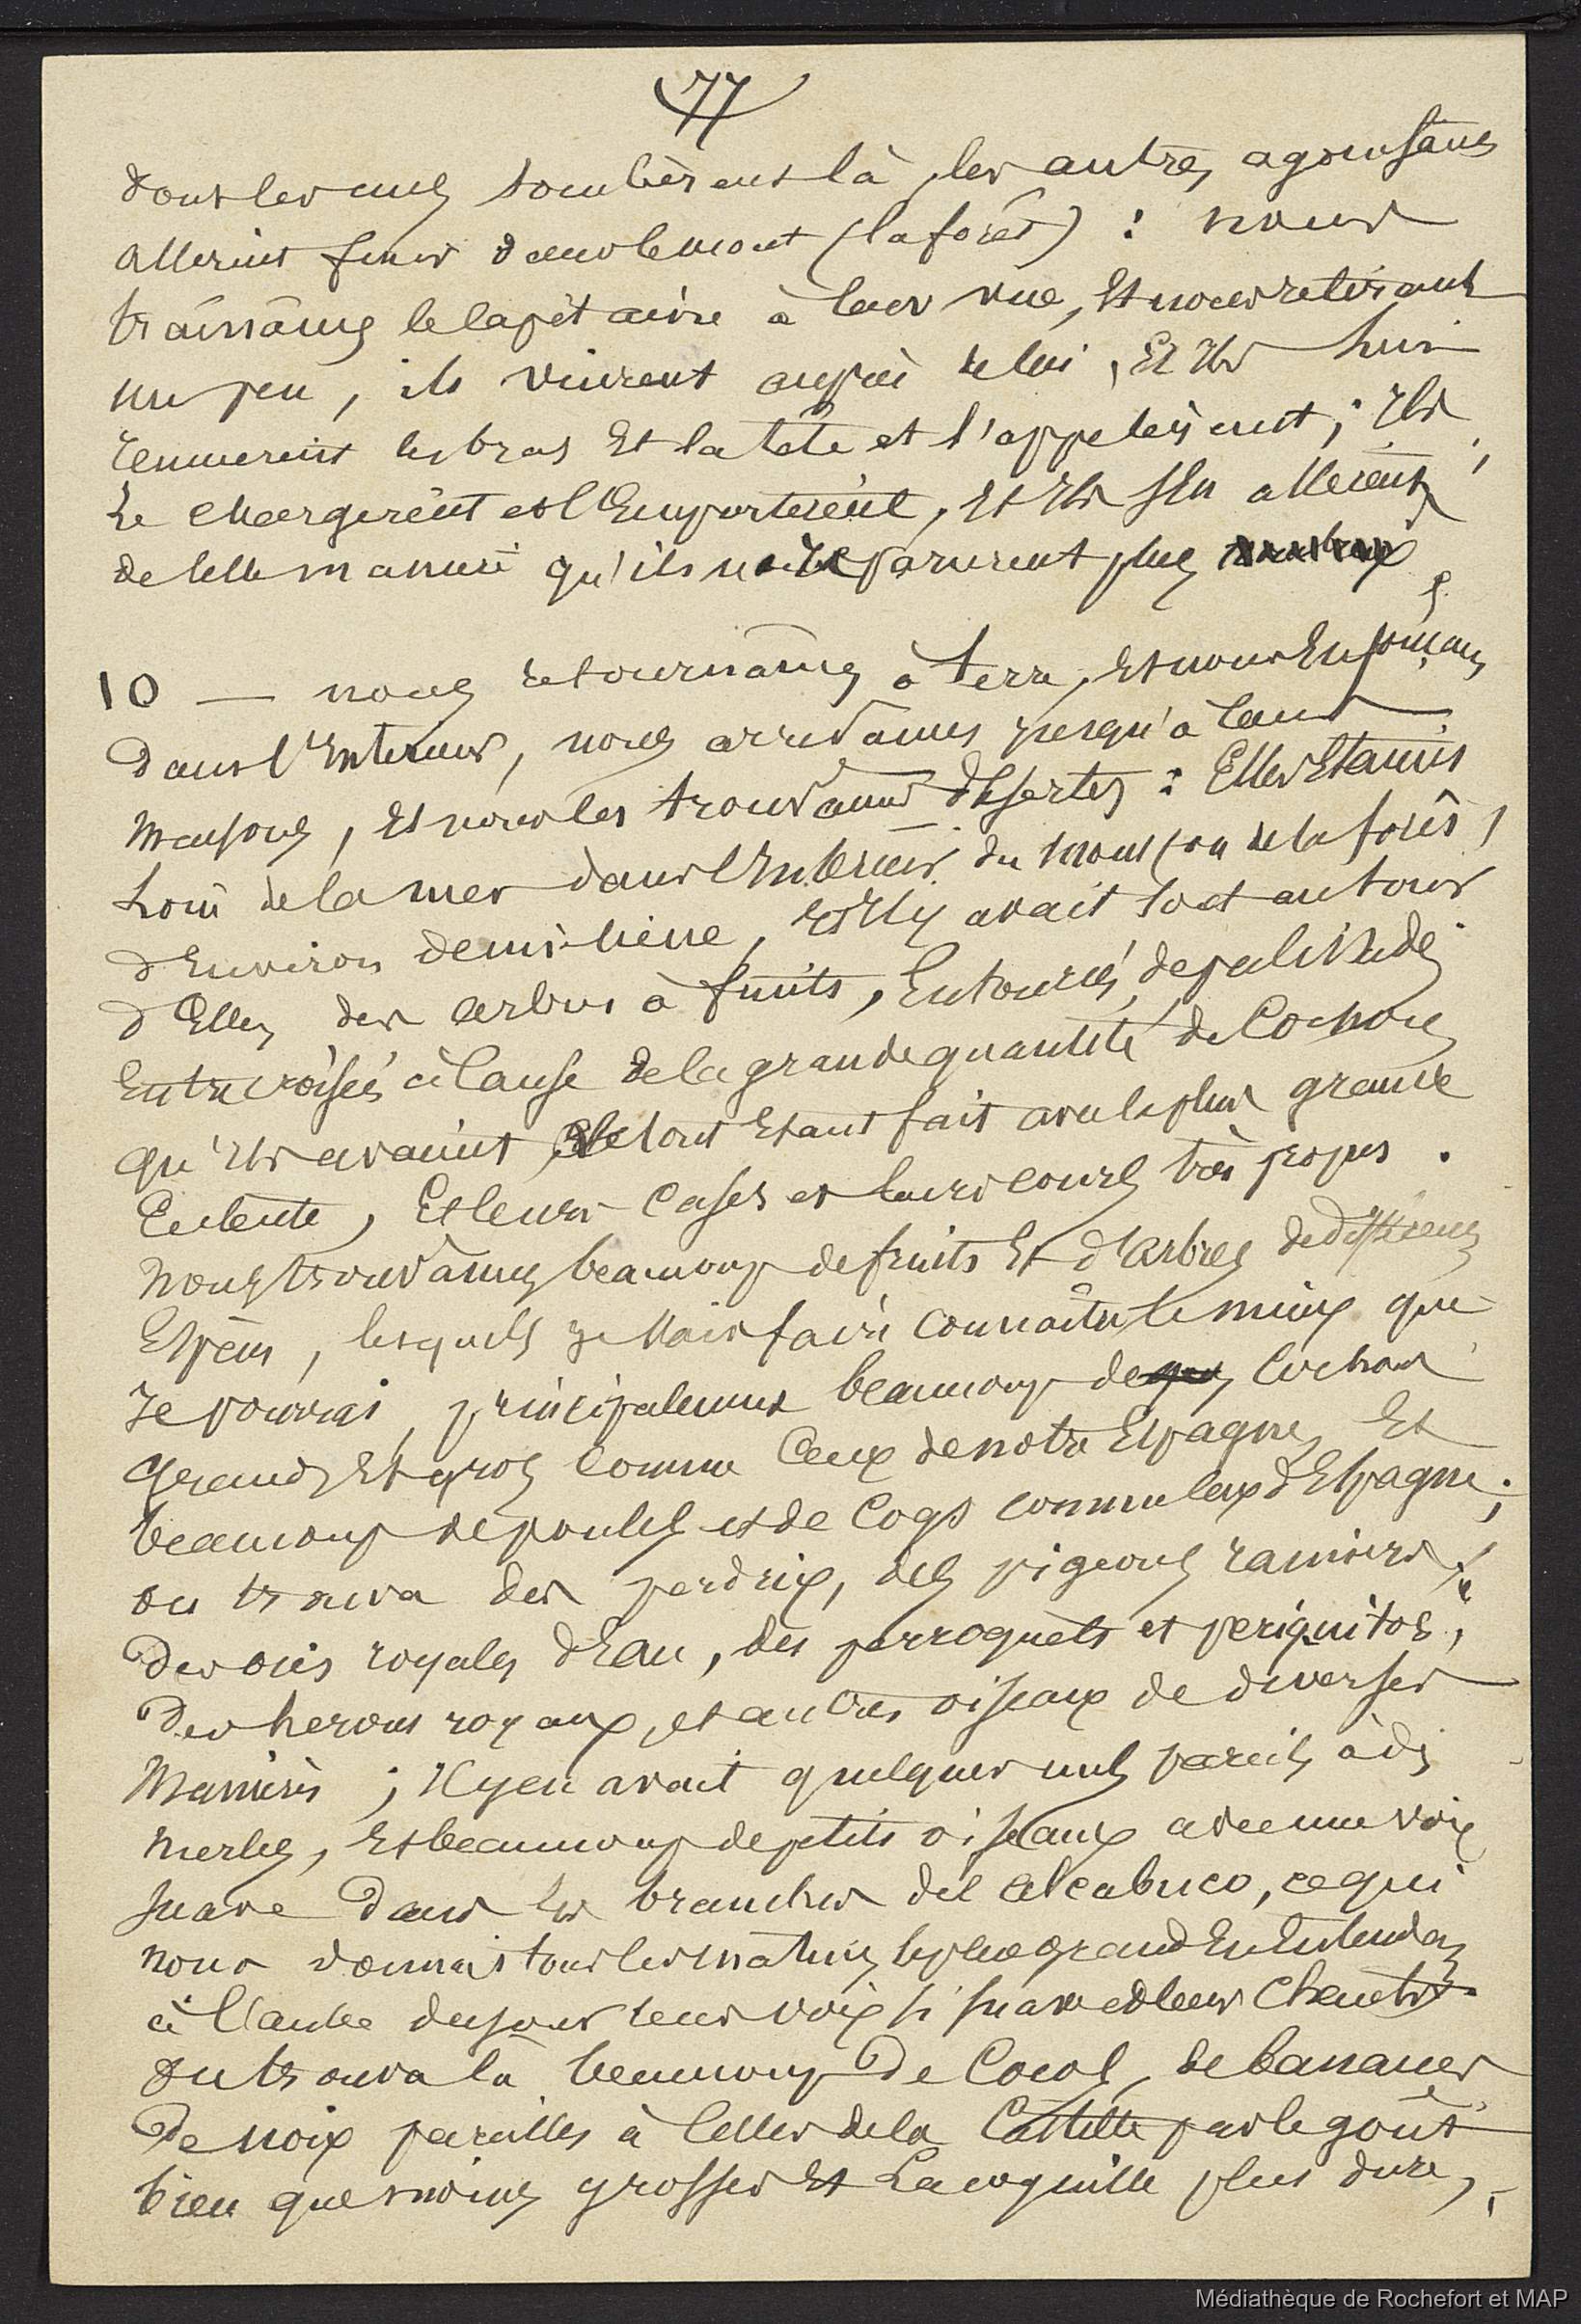 77
dont les uns tombèrent là, les autres, agonisans
allerent finir dans le mont (la forêt) : nous
traînâmes le capitaine à leur vue, et nous retirant
un peu, ils vinrent auprès de lui, et ils lui
remuerent les bras et la tête et l'appelèrent ; ils
le chargerent et l'emporterent, et ils s'en allerent
de telle maniere qu'ils ne reparurent plus
10 — nous retournâmes à terre, et nous enfonçans
dans l'interieur, nous arrivâmes jusqu'à leurs
maisons, et nous les trouvâmes désertes : Elles etaient
loin de la mer dans l'interieur du mont (ou de la forêt)
d'environ demi-lieue, et il y avait tout autour
d'Elles des arbres à fruits, entourés de palissades
entrecroisées à cause de la grande quantité de cochons
qu'ils avaient, le tout etant fait avec la plus grande
entente, et leurs cases et leurs cours très propres.
nous trouvâmes beaucoup de fruits et d'arbres de differens
Espèces, lesquels je vais faire connaître le mieux que
je pourrai, principalement beaucoup de cochons
grands et gros comme ceux de notre Espagne, et
beaucoup de poules et de coqs comme ceux d'Espagne ;
on trouva des perdrix, des pigeons ramiers,
des oies royales d'Eau, des perroquets et periquitos,
des herons royaux, et autres oiseaux de diverses
manieres ; il y en avait quelques uns pareils à des
merles, et beaucoup de petits oiseaux avec une voix
suave dans les branches del alcabuco, ce qui
nous donnait tous les matins en entendant
à l'aube du jour leur voix si suave et leurs chants
on trouva là beaucoup de cocos, de bananes
de noix pareilles à celles de la Castille par le goût
bien que moins grosses et la coquille plus dure,
Médiathèque de Rochefort et MAP